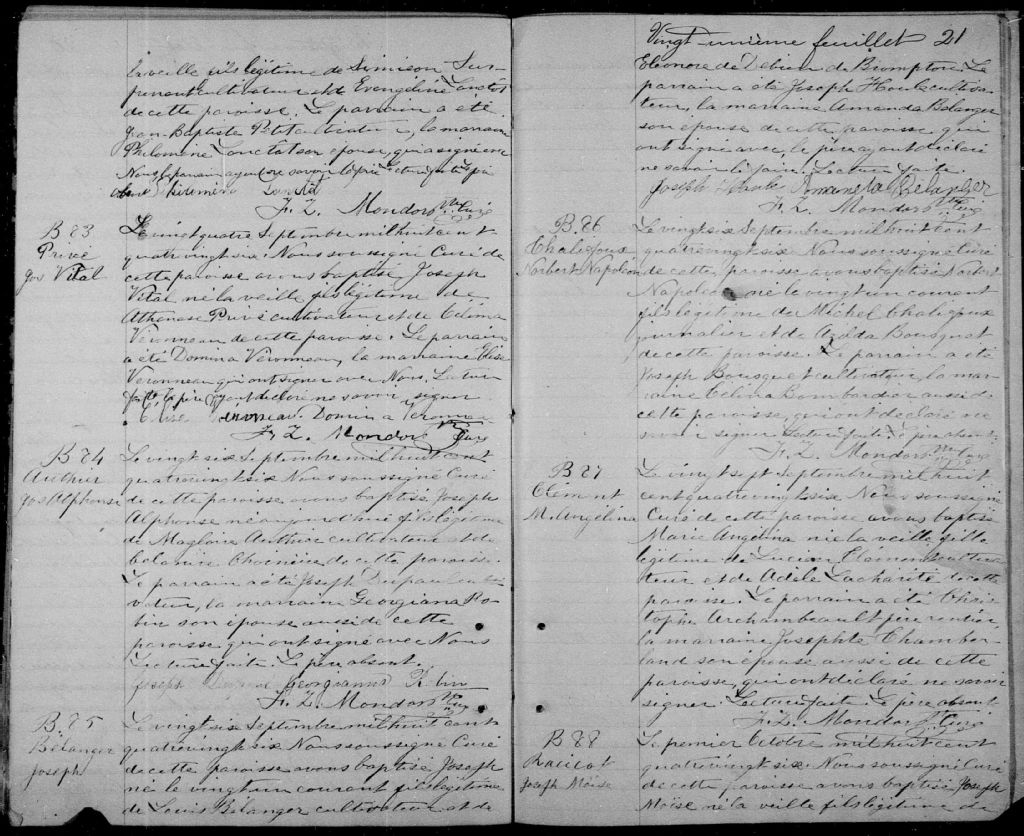 la veille fils légitime de Siméon
cultivateur et de Evangéline
de cette paroisse. Le parrain a été
Jean-Baptiste cultivateur, la marraine
Philomène son épouse, qui a signé avec
Nous le parrain ayant
absent Philomène
F. Z. Mondor Ptre Curé
B 83
Privé
Jos Vital
Le vingt quatre Septembre mil huit cent
quatre vingt six Nous soussigné Curé de
cette paroisse avons baptisé Joseph
Vital né la veille fils légitime de
Athanase Privé cultivateur et de Célima
Véronneau de cette paroisse. Le parrain
a été Domina Véronneau, la marraine Elise
Veronneau qui ont signer avec Nous. Lecture
faite, le père ayant déclaré ne savoir signer
Elise Veronneau. Domina Veronneau
F. Z. Mondor Ptre Curé
B 84
Authier
Jos Alphonse
Le vingt six Septembre mil huit cent
quatrevingt six Nous soussigné Curé
de cette paroisse avons baptisé Joseph
Alphonse né aujourd'hui fils légitime
de Magloire Authier cultivateur et de
de cette paroisse.
Le parrain a été Joseph Dupaul culti
vateur, la marraine Georgiana Ro-
bin son épouse aussi de cette
paroisse qui ont signé avec Nous
Lecture faite Le père absent.
Joseph Georgianna Robin
F. Z. Mondor Ptre Curé
B. 85
Bélanger
Joseph
Le vingt six Septembre mil huit cent
quatrevingt six Nous soussigné Curé
de cette paroisse avons baptisé Joseph
né le vingt un courant fils légitime
de Louis Bélanger cultivateur et de
Vingt-unième feuillet 21
Eléonore de Brompton. Le
parrain a été Joseph Houle cultiva-
teur, la marraine Amanda Bélanger
son épouse de cette paroisse qui
ont signé avec, le père ayant déclaré
ne savoir le faire. Lecture faite.
Joseph Amanda Bélanger
F. Z. Mondor Ptre Curé
B. 86
Chalifoux
Norbert Napoléon
Le vingt six Septembre mil huit cent
quatrevingt six Nous soussigné Curé
de cette paroisse avons baptisé Norbert
Napoléon né le vingt un courant
fils légitime de Michel Chalifoux
journalier et de Exilda Bousquet
de cette paroisse. Le parrain a été
Joseph Bousquet cultivateur, la mar-
raine Célina Bombardier aussi de
cette paroisse, qui ont déclaré ne
savoir signer Lecture faite. Le père absent.
F. Z. Mondor Ptre Curé
B 87
Clément
M. Angélina
Le vingt sept Septembre mil huit
cent quatrevingt six Nous soussigné
Curé de cette paroisse avons baptisé
Marie Angélina née la veille fille
légitime de Lucien Clément cultiva-
teur et de Adèle Lacharité de cette
paroisse. Le parrain a été Chris-
tophe Archambeault père rentier,
la marraine Josephte Chamber-
land son épouse aussi de cette
paroisse, qui ont déclaré ne savoir
signer. Lecture faite. Le père absent
F. Z. Mondor Ptre Curé
B 88
Racicot
Joseph Moïse
Le premier Octobre mil huit cent
quatrevingt six. Nous soussigné Curé
de cette paroisse avons baptisé Joseph
Moïse né la veille fils légitime de